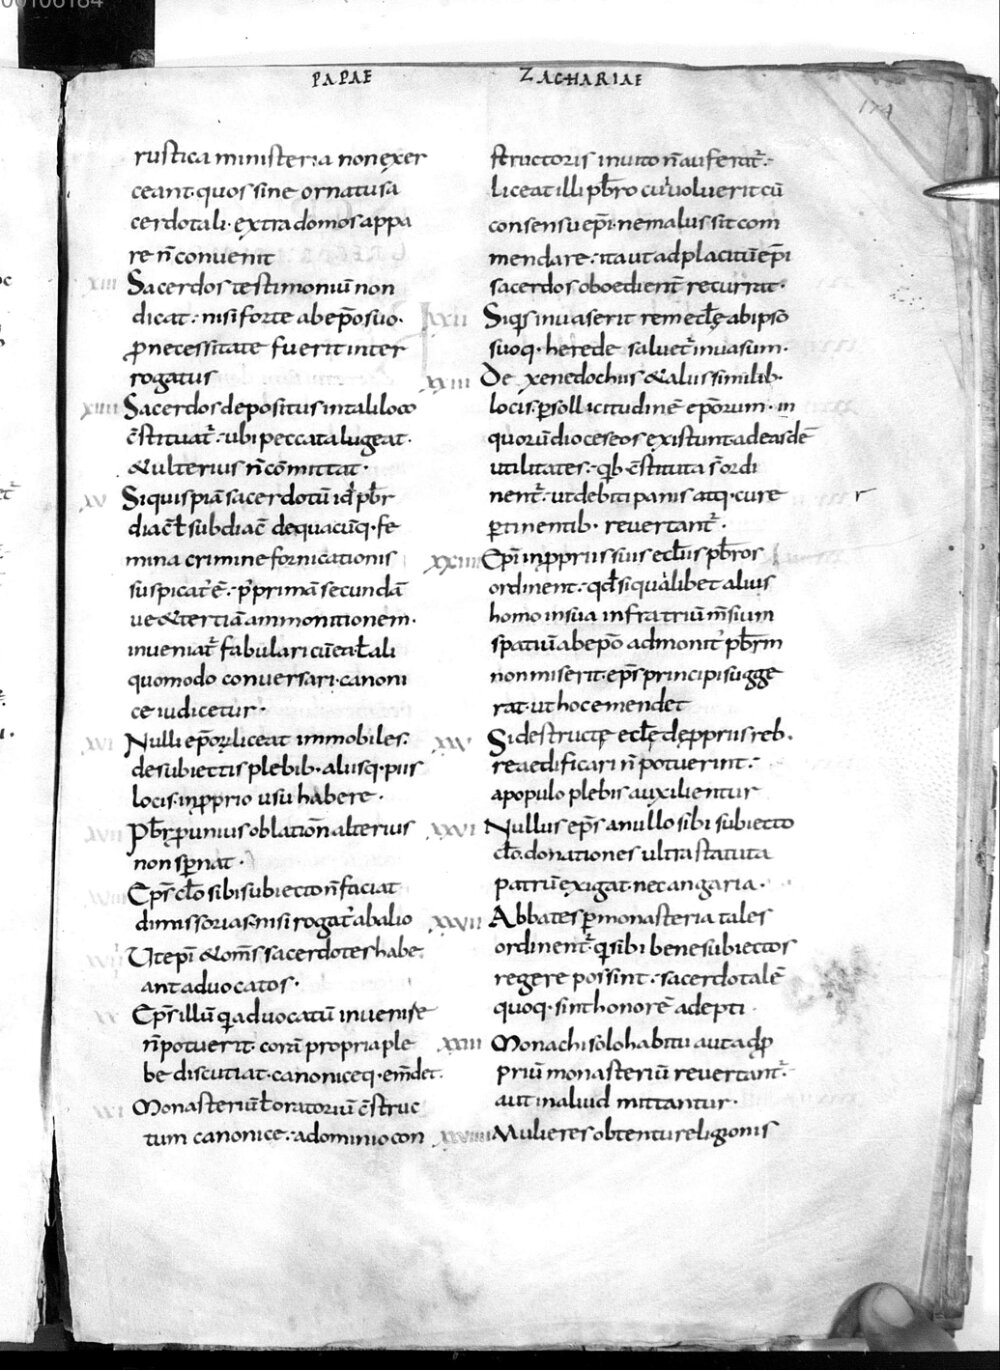 00106184
PAPAE ZACHARIAE
174
rustica ministeria non exer
ceant. quos sine ornatu sa
cerdotali. extra domos appa
re n̄ conuenit
xiii Sacerdos testimoniū non
dicat: nisi forte ab ep̄o suo.
ꝓ necessitate fuerit inter
rogatus
xiiii Sacerdos depositus in tali loco
c̄stituat᷑: ubi peccata lugeat.
& ulterius n̄ cōmittat.
xv Si quispiā sacerdotū id ÷ pb̄r
diac̄ ł subdiac̄ de quacūq. fe
mina crimine fornicationis
suspicat᷑ ē: p᷑ primā secundā
ue & tertiā ammonitionem.
inueniat᷑ fabulari cū ea ł ali
quomodo conuersari. canoni
ce iudicetur.
xvi Nulli ep̄oꝝ liceat immobiles.
de subiectis plebib. aliisq. piis
locis. in ꝓprio usu habere.
xvii Pb̄r ꝓpunius oblationē alterius
non sꝑnat.
xviii Ep̄s cło sibi subiecto n̄ faciat
dimissorias. nisi rogat᷑ ab alio
Ut ep̄i & om̄s sacerdotes habe
ant aduocatos.
xx Ep̄s illū q aduocatū inuenire
n̄ potuerit. corā propria ple
be discutiat. canoniceq. em̄det.
xxi Monasteriū ł oratoriū c̄struc
tum canonice: a dominio con
structoris inuito n̄ auferat᷑:
liceat illi pb̄ro cui uoluerit cū
consensu ep̄i. ne malus sit com
mendare: ita ut ad placitū ep̄i
sacerdos oboedient᷑ recurrat.
xxii Siq̄s inuaserit rem ecłę ab ipso
suoq. herede saluet᷑ inuasum.
xxiii De xenedochiis & aliis similib.
locis. ꝑ sollicitudinē ep̄orum. in
quorū dioceseos existunt ad easdē
utilitates: qb c̄stituta s̄ ordi
nent᷑: ut debiti panis atq. cure r
ꝑtinentib. reuertant᷑.
xxiiii Ep̄i in ꝓpriis suis ecłiis pb̄ros
ordinent: qd̄ si qualibet alius
homo in sua infra triū m̄sium
spatiū ab ep̄o admonit᷑ pb̄rm
non miserit. ep̄s principi sugge
rat. ut hoc emendet
xxv Si destructę ecłę de ꝓpriis reb.
reaedificari n̄ potuerint:
a populo plebis auxilientur
xxvi Nullus ep̄s a nullo sibi subiecto
cło. donationes ultra statuta
patrū exigat. nec angaria.
xxvii Abbates ꝑ monasteria tales
ordinent᷑ q sibi bene subiectos
regere possint: sacerdotalē
quoq. sint honorē adepti.
xxviii Monachi solo habitu aut ad ꝓ
priū monasteriū reuertant᷑:
aut in aliud mittantur.
xxviiii Mulieres obtentu religionis